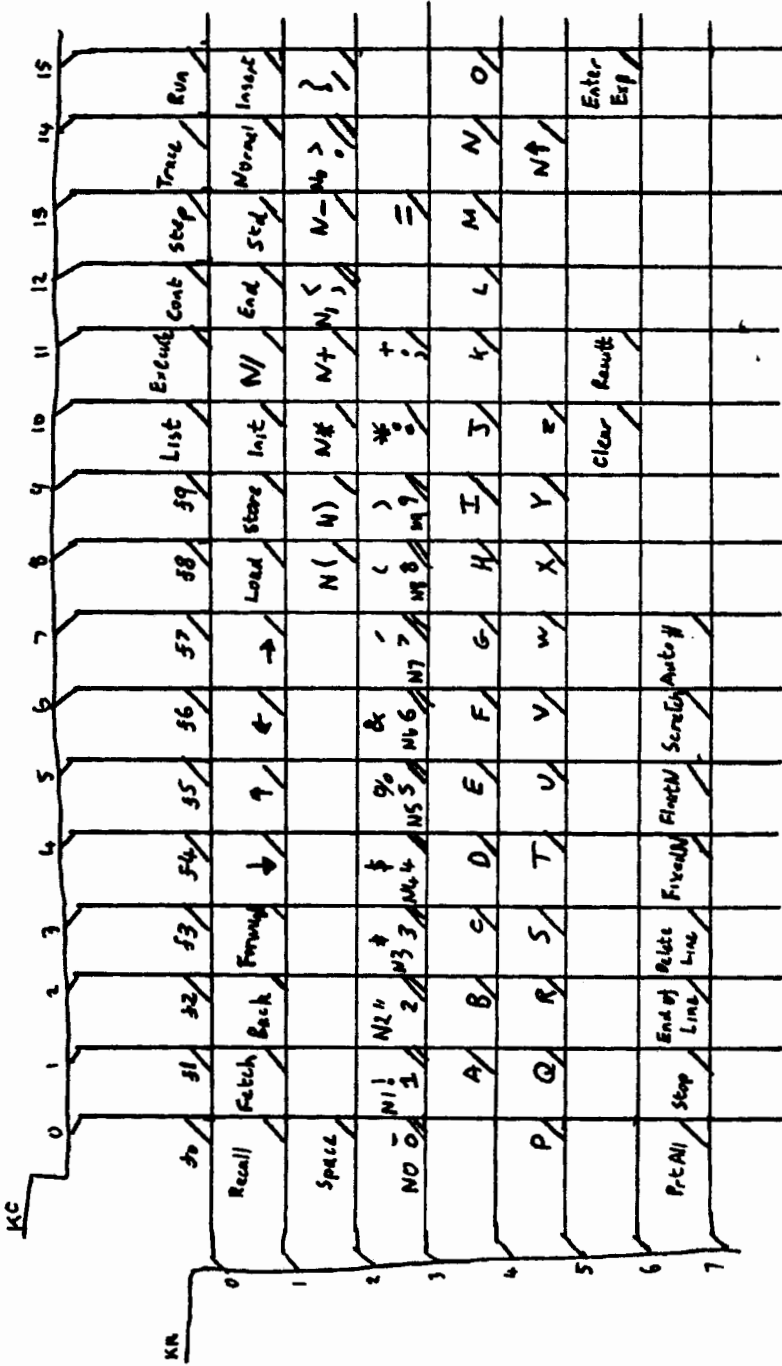 KC
0 1 2 3 4 5 6 7 8 9 10 11 12 13 14 15
KR
f0 f1 f2 f3 f4 f5 f6 f7 f8 f9 List Execute Cont Step Trace Run
0 Recall Fetch Back Forward ↓ ↑ ← → Load Store Init N/ End Std Normal Insert
1 Space N( N) N* N+ N, < , N- N. > .
2 N0 0 N1 ! 1 N2 " 2 N3 # 3 N4 $ 4 N5 % 5 N6 & 6 N7 ' 7 N8 ( 8 N9 ) 9 * : + ; =
3 A B C D E F G H I J K L M N O
4 P Q R S T U V W X Y Z N↑
5 Clear Result Enter Exp
6 Prt All Stop End of Line Delete Line Fixed N Float N Scratch Auto #
7